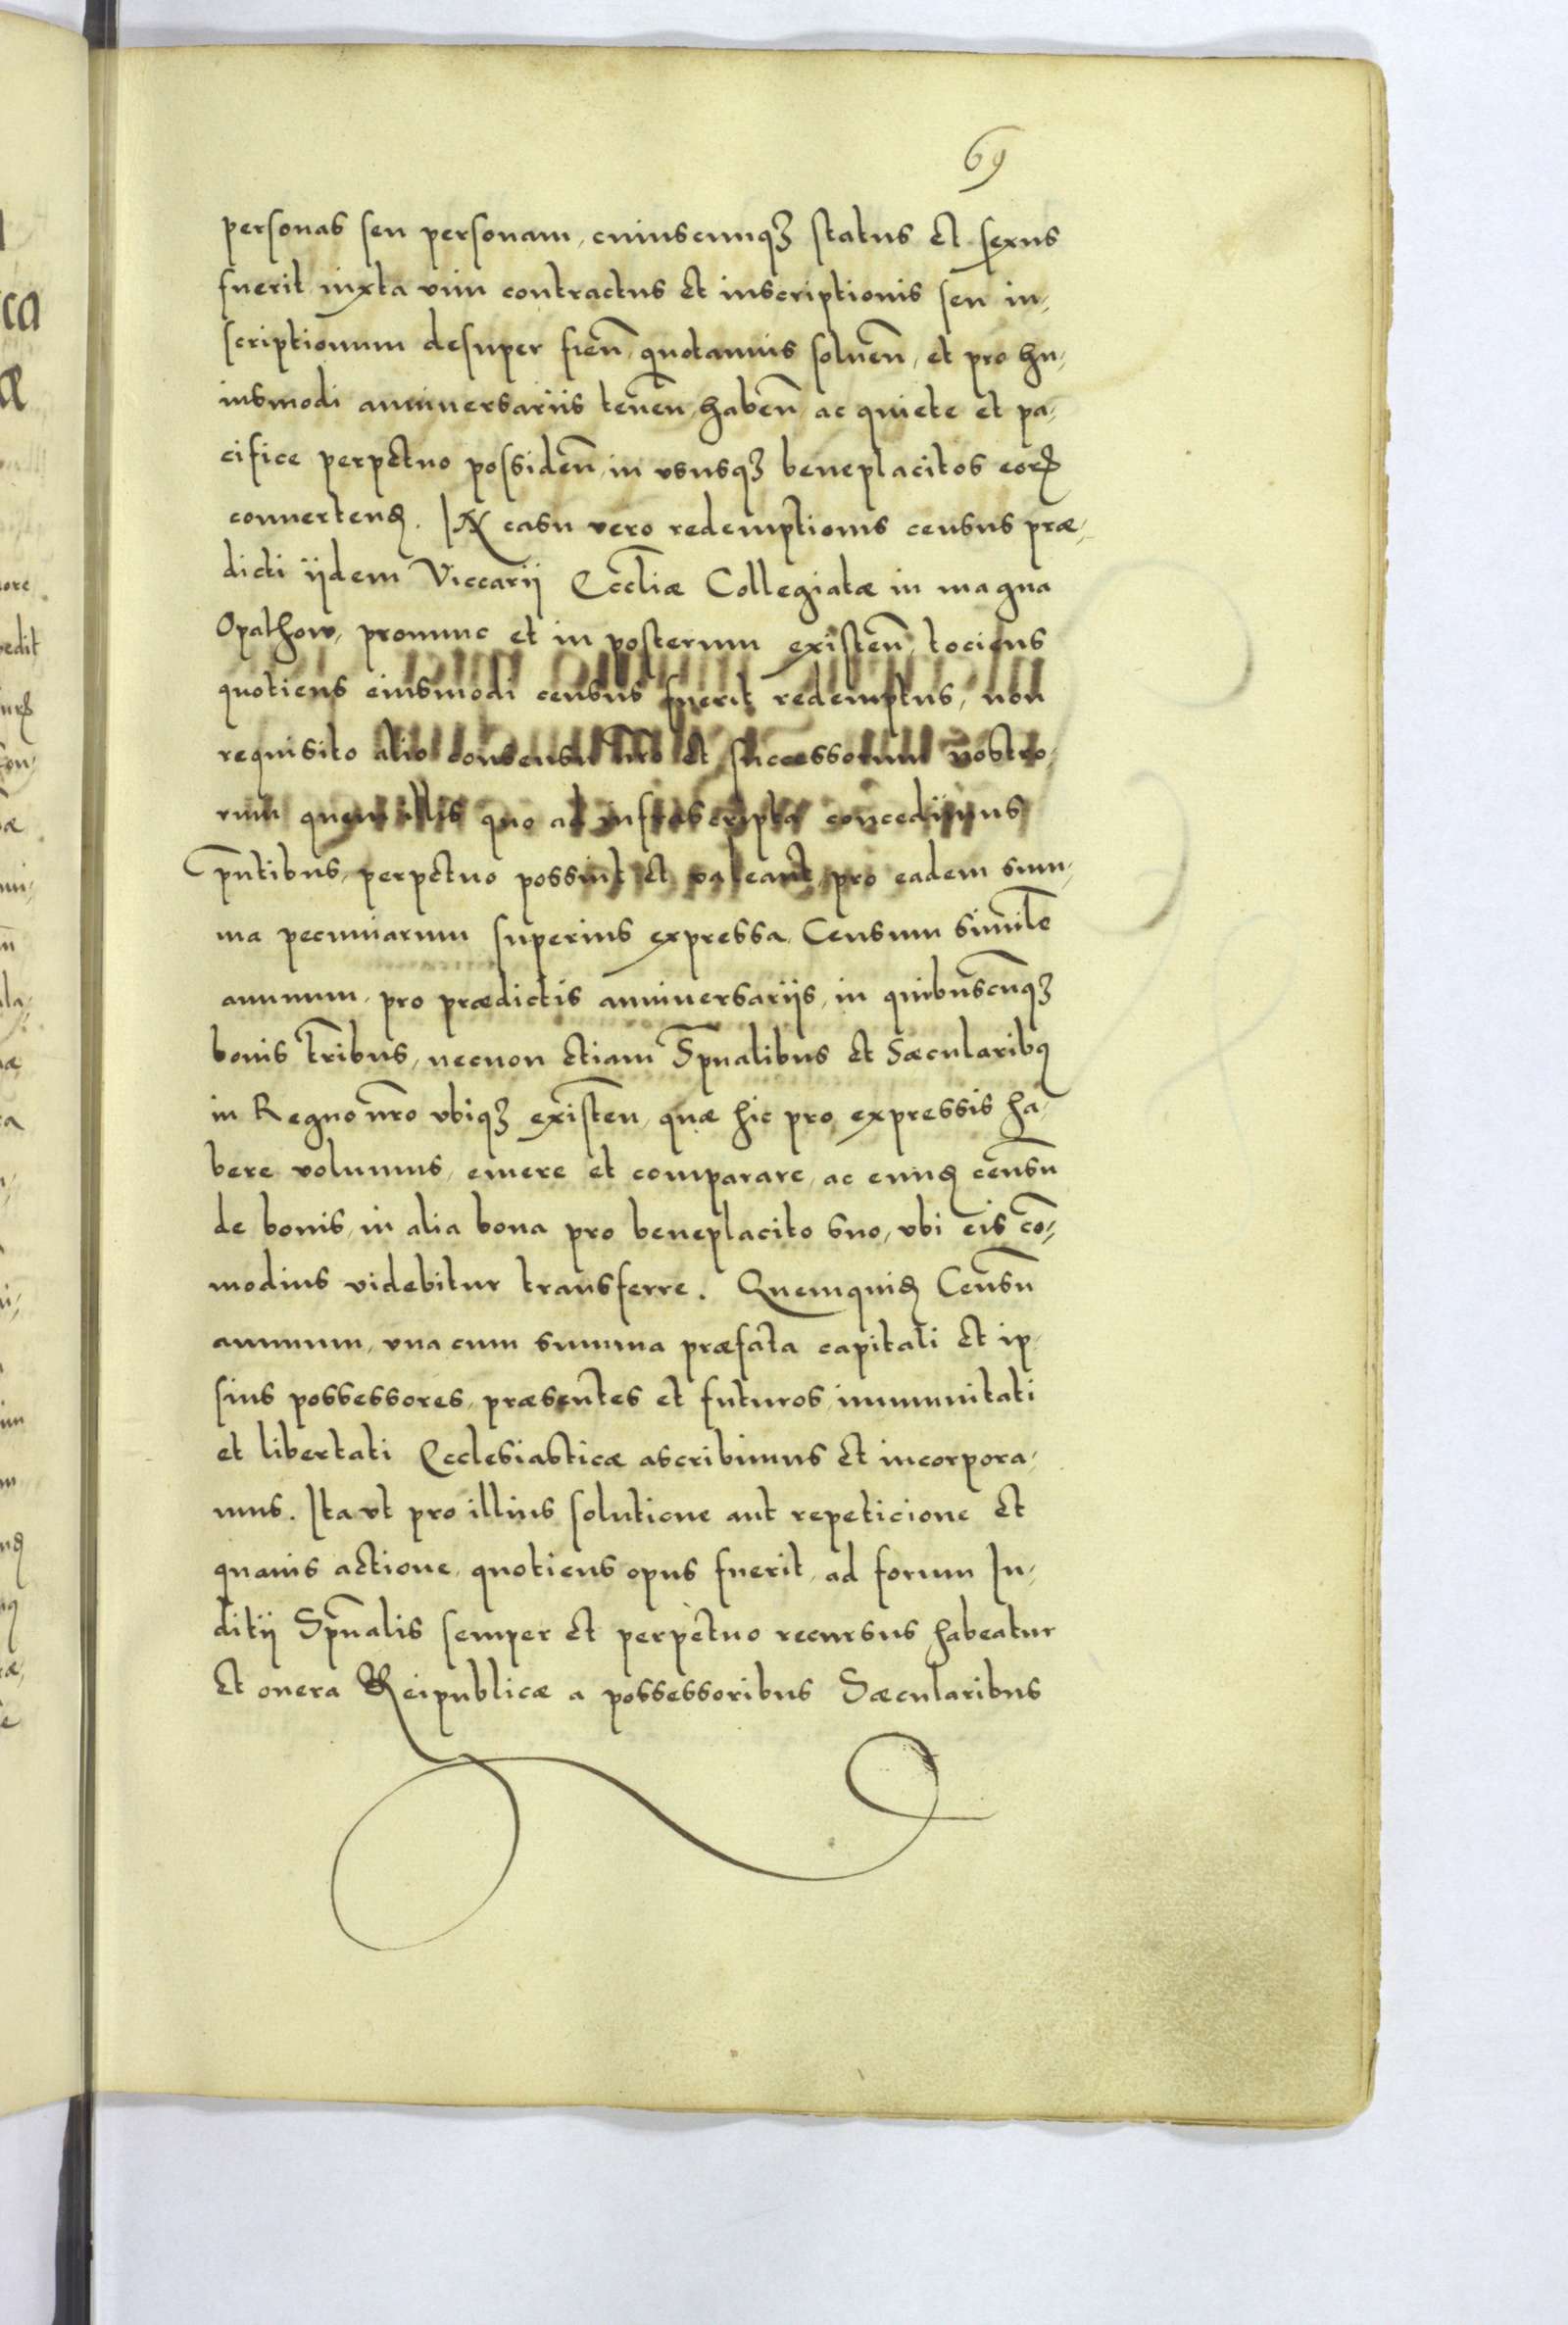 69
personas seu personam, cuiuscunqꝫ status et sexus
fuerit iuxta vim contractus et inscriptionis seu in-
scriptionum desuper fien̄ quotannis soluen̄, et pro hu-
iusmodi anniuersariis tenen̄ haben̄ ac quiete et pa-
cifice perpetuo possiden̄ in vsusqꝫ beneplacitos eorꝝ
conuertenꝺ. IN casu vero redemptionis census præ-
dicti iidem Viccarij Eccl̄iæ Collegiatæ in magna
Opathow, pronunc et in posterum existen̄ tociens
quotiens eiusmodi census fuerit redemptus, non
requisito alio consensu nr̄o et successorum nostro-
rum quem illis quo ad infrascripta concedimus
pn̄tibus, perpetuo possint et valeant pro eadem sum-
ma pecuniarum superius expressa, Censum simile̅
annuum, pro prædictis anniuersariis, in quibuscūqꝫ
bonis tr̄ribus, necnon etiam Spūalibus et Sæcularibꝰ
in Regno nr̄o vbiqꝫ existen̄, quæ hic pro expressis ha-
bere volumus, emere et comparare, ac eunꝺ censū
de bonis, in alia bona pro beneplacito suo, vbi eis cō-
modius videbitur transferre. Quemquiꝺ Censū
annuum, vna cum summa præfata capitali et ip-
sius possessores, præsentes et futuros, immunitati
et libertati Ecclesiasticæ ascribimus et incorpora-
mus. Ita vt pro illius solutione aut repeticione et
quauis actione, quotiens opus fuerit, ad forum Iu-
ditij Spūalis semper et perpetuo recursus habeatur
et onera Reipublicæ a possessoribus Sæcularibus